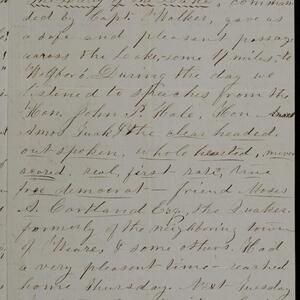 The Lady of the Lake, comman
ded by Capt. Walker, gave us
a safe and pleasant passage
across the Lake, some 17 miles, to
Wolfboro'. During the day we
listened to speaches from the
Hon. John P. Hale, Hon
Amos Tuck & the clear headed,
out spoken, whole hearted,
real, first rate, true
free democrat — friend Moses
A. Cartland Esq., the Quaker
formerly of the neighboring town
of Weare, & some others. Had
a very pleasant time — reached
home Thursday. Next Tuesday